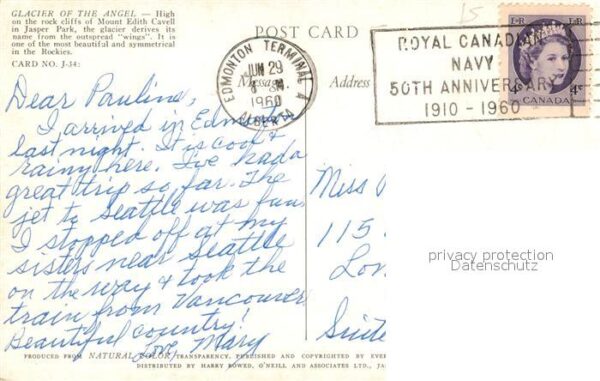 GLACIER OF THE ANGEL — High
on the rock cliffs of Mount Edith Cavell
in Jasper Park, the glacier derives its
name from the outspread "wings". It is
one of the most beautiful and symmetrical
in the Rockies.
CARD NO. J-34:
POST CARD
Message
Address
EDMONTON TERMINAL A
JUN 29
1960
ALBERTA
15
ROYAL CANADIAN
NAVY
50TH ANNIVERSARY
1910 - 1960
CANADA
4¢
Dear Pauline,
I arrived in
last night. It is cool &
rainy here. I've had a
great trip so far. The
jet to Seattle was fun.
I stopped off at my
sisters near Seattle
on the way & took the
train from Vancouver
Beautiful country!
Love, Mary
Miss
115
Lon
Suite
privacy protection
Datenschutz
PRODUCED FROM NATURAL COLOR TRANSPARENCY, PUBLISHED AND COPYRIGHTED BY
DISTRIBUTED BY HARRY ROWED, O'NEILL AND ASSOCIATES LTD.,